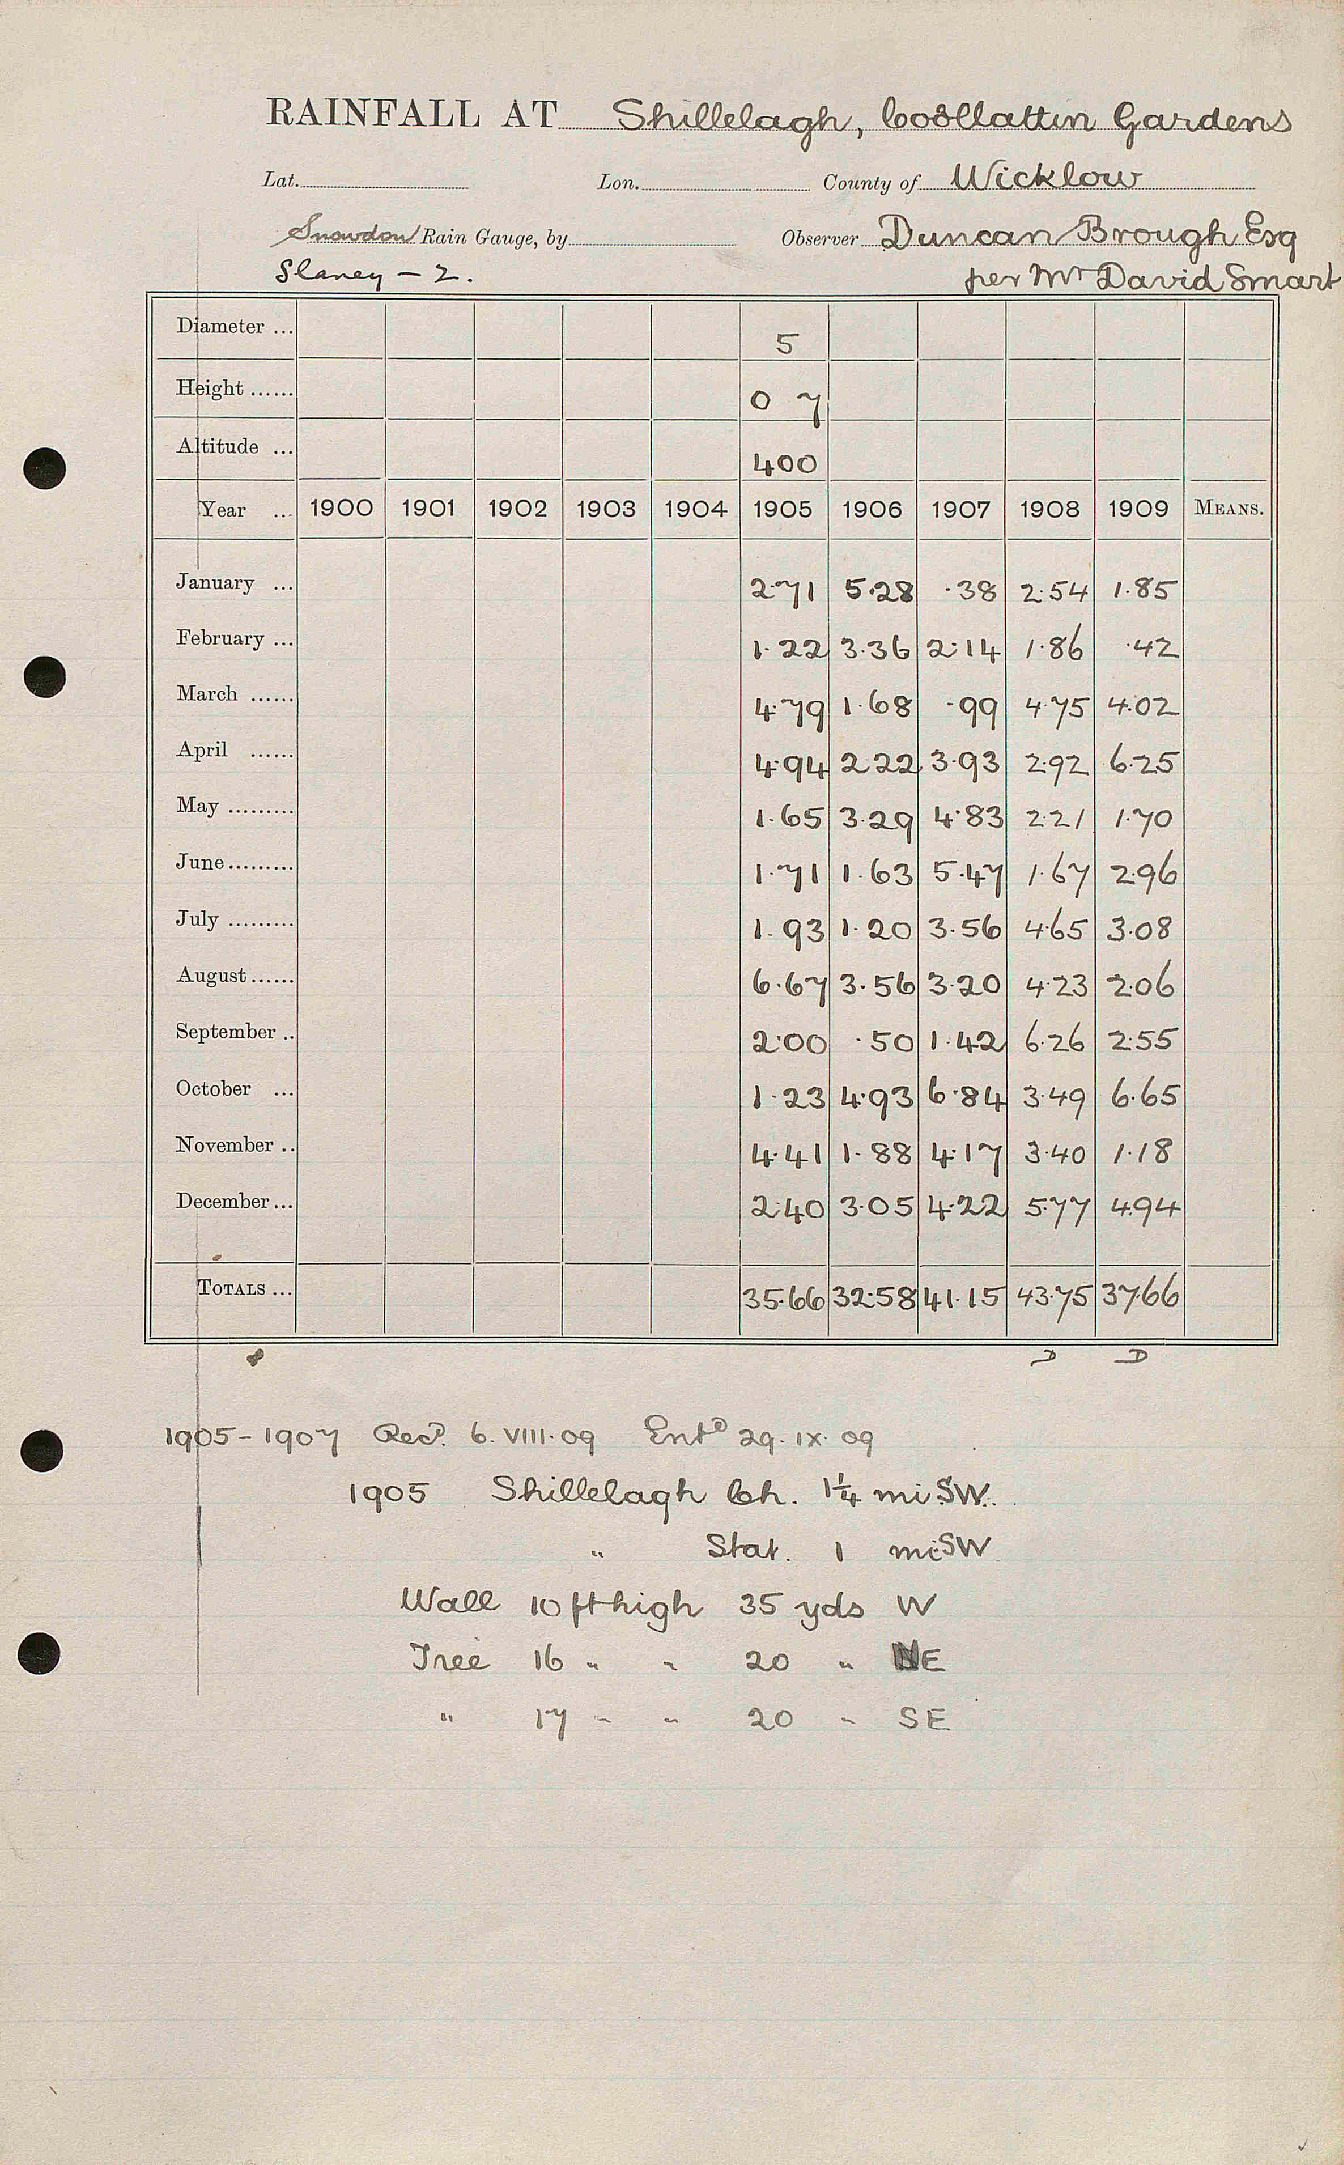 RAINFALL AT Shillelagh, Coollattin Gardens
Lat. Lon. County of Wicklow
Snowdon Rain Gauge, by Observer Duncan Brough Esq
Slaney - 2. per Mr David Smart
Diameter ... 5
Height ...... 0 7
Altitude ... 400
Year ... 1900 1901 1902 1903 1904 1905 1906 1907 1908 1909 MEANS.
January ... 2.71 5.28 .38 2.54 1.85
February ... 1.22 3.36 2.14 1.86 .42
March ...... 4.79 1.68 .99 4.75 4.02
April ...... 4.94 2.22 3.93 2.92 6.25
May ......... 1.65 3.29 4.83 2.21 1.70
June ......... 1.71 1.63 5.47 1.67 2.96
July ......... 1.93 1.20 3.56 4.65 3.08
August ...... 6.67 3.56 3.20 4.23 2.06
September .. 2.00 .50 1.42 6.26 2.55
October ... 1.23 4.93 6.84 3.49 6.65
November .. 4.41 1.88 4.17 3.40 1.18
December ... 2.40 3.05 4.22 5.77 4.94
TOTALS ... 35.66 32.58 41.15 43.75 37.66
D D
1905-1907 Recd. 6.VIII.09 Entd 29.IX.09
1905 Shillelagh Ch. 1¼ mi SW.
" Stat. 1 mi SW
Wall 10 ft high 35 yds W
Tree 16 " " 20 " NE
" 17 " " 20 " SE